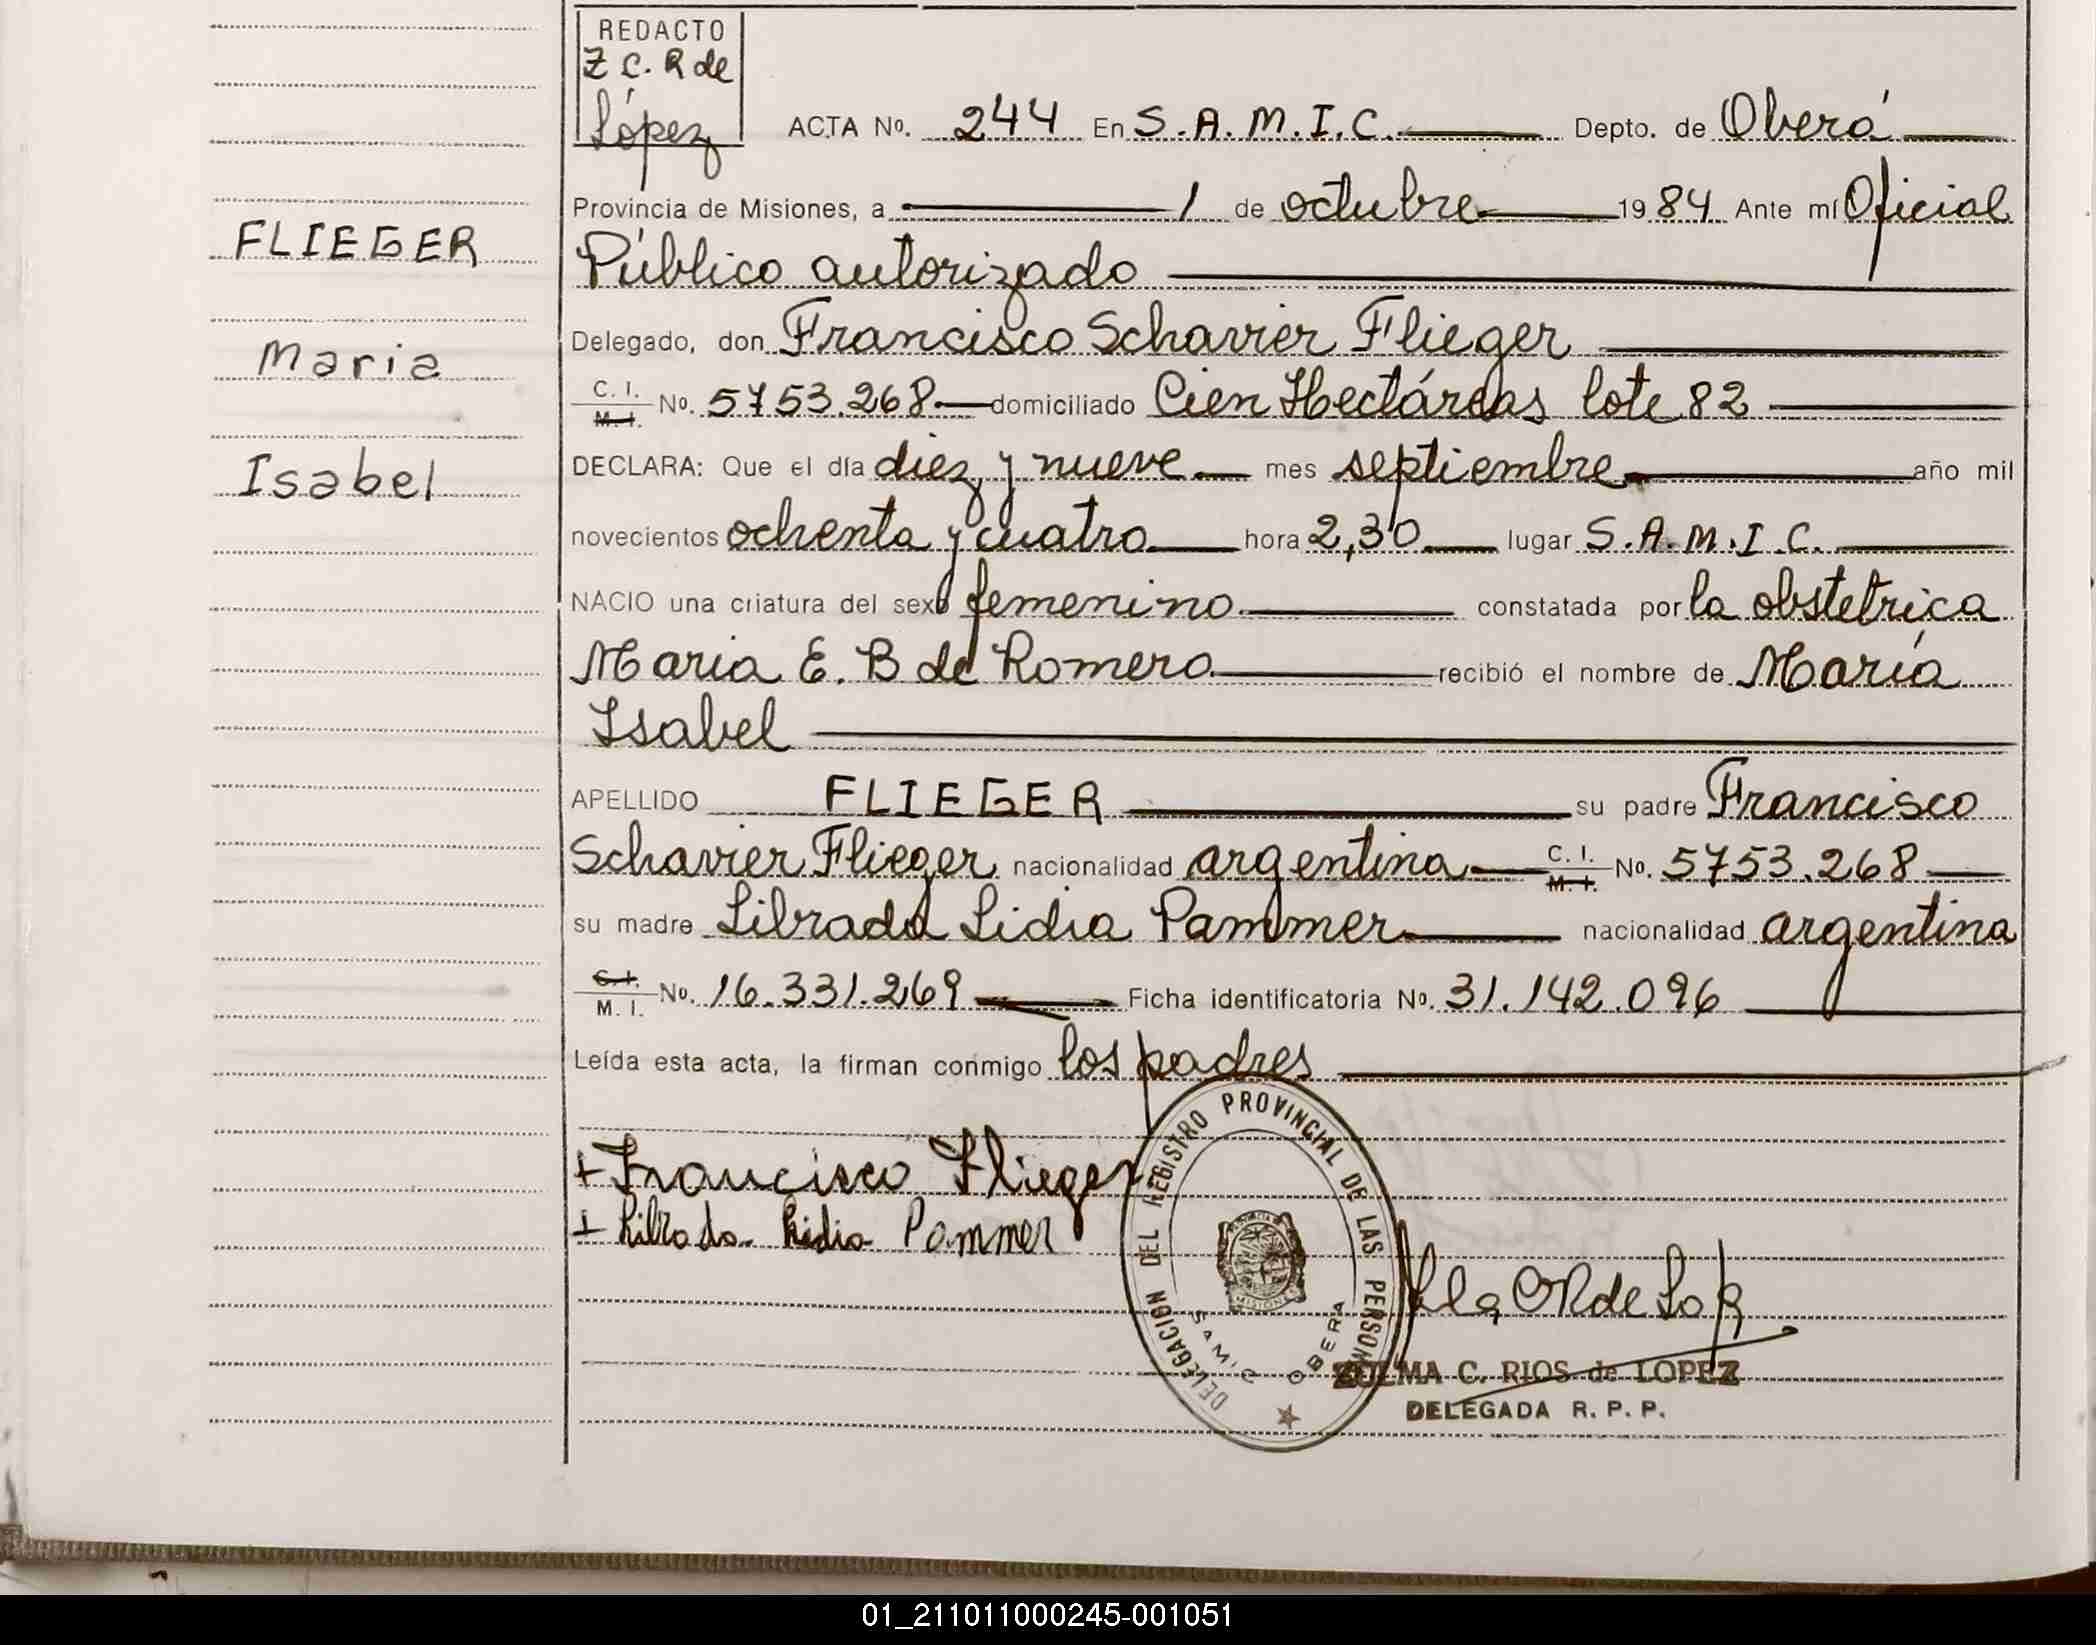 REDACTO
Z C. R de
López
ACTA No. 244 En S.A.M.I.C. Depto. de Oberá
Provincia de Misiones, a 1 de octubre 1984 Ante mí Oficial
Público autorizado
Delegado, don Francisco Schavier Flieger
C. I. M. I. No. 5753.268 domiciliado Cien Hectáreas lote 82
DECLARA: Que el día diez y nueve mes septiembre año mil
novecientos ochenta y cuatro hora 2,30 lugar S.A.M.I.C.
NACIO una criatura del sexo femenino constatada por la obstetrica
Maria E. B de Romero recibió el nombre de María
Isabel
APELLIDO FLIEGER su padre Francisco
Schavier Flieger nacionalidad argentina C. I. M. I. No. 5753.268
su madre Librada Lidia Pammer nacionalidad argentina
C. I. M. I. No. 16.331.269 Ficha identificatoria No. 31.142.096
Leída esta acta, la firman conmigo los padres
+ Francisco Flieger
+ Librada Lidia Pammer
FLIEGER
Maria
Isabel
DELEGACION DEL REGISTRO PROVINCIAL DE LAS PERSONAS
SAMIC OBERA
MISIONES
ZULMA C. RIOS de LOPEZ
DELEGADA R. P. P.
01_211011000245-001051